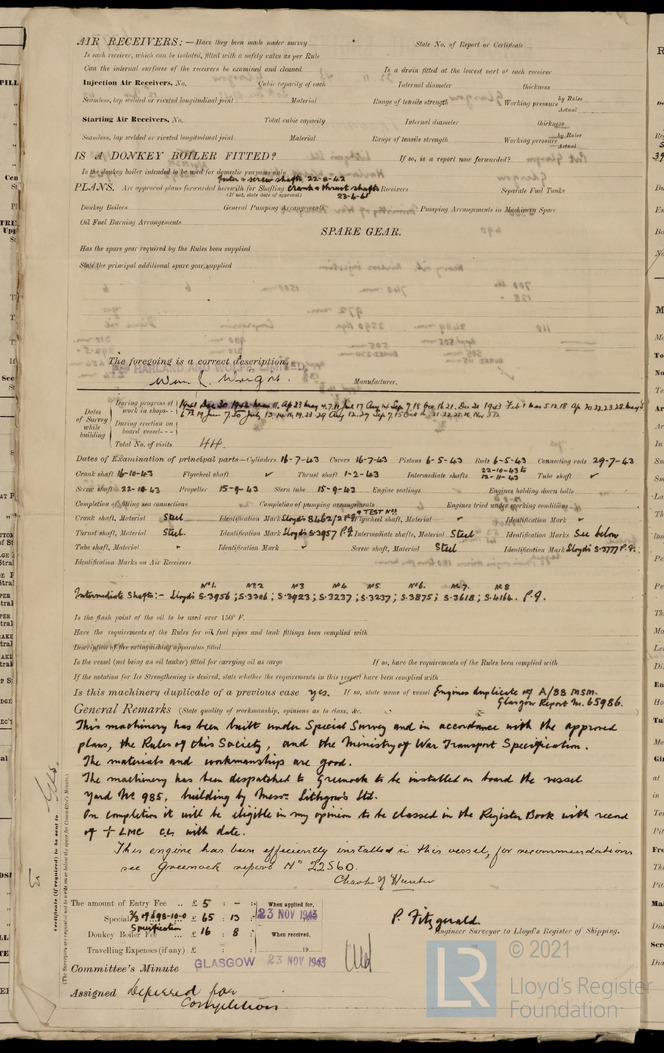 AIR RECEIVERS:—Have they been made under survey State No. of Report or Certificate
Is each receiver, which can be isolated, fitted with a safety valve as per Rule
Can the internal surfaces of the receivers be examined and cleaned Is a drain fitted at the lowest part of each receiver
Injection Air Receivers, No. Cubic capacity of each Internal diameter thickness
Seamless, lap welded or riveted longitudinal joint Material Range of tensile strength Working pressure by Rules Actual
Starting Air Receivers, No. Total cubic capacity Internal diameter thickness
Seamless, lap welded or riveted longitudinal joint Material Range of tensile strength Working pressure by Rules Actual
IS A DONKEY BOILER FITTED? If so, is a report now forwarded?
Is the donkey boiler intended to be used for domestic purposes only
screw shafts 22-8-42
PLANS. Are approved plans forwarded herewith for Shafting Crank & thrust shafts Receivers Separate Fuel Tanks
(If not, state date of approval) 23-6-41
Donkey Boilers General Pumping Arrangements Pumping Arrangements in Machinery Space
Oil Fuel Burning Arrangements
SPARE GEAR.
Has the spare gear required by the Rules been supplied
State the principal additional spare gear supplied
The foregoing is a correct description,
HARLAND AND WOLFF, LIMITED
Manufacturer.
Dates of Survey while building
During progress of work in shops--
During erection on board vessel---
Total No. of visits 44
Dates of Examination of principal parts—Cylinders 16-7-43 Covers 16-7-43 Pistons 6-5-43 Rods 6-5-43 Connecting rods 29-7-43
Crank shaft 16-10-43 Flywheel shaft Thrust shaft 1-2-43 Intermediate shafts 22-10-43 to 12-11-43 Tube shaft
Screw shaft 22-10-43 Propeller 15-9-43 Stern tube 15-9-43 Engine seatings Engines holding down bolts
Completion of fitting sea connections Completion of pumping arrangements Engines tried under working conditions
Crank shaft, Material Steel Identification Mark Lloyd's 8462/2 P.F. Flywheel shaft, Material Identification Mark
Thrust shaft, Material Steel. Identification Mark Lloyd's S.3957 P.F. Intermediate shafts, Material Steel Identification Marks See below
Tube shaft, Material Identification Mark Screw shaft, Material Steel Identification Mark Lloyd's S.3777 P.F.
Identification Marks on Air Receivers
No1. No2 No3 No4 No5. No6. No7. No8
Intermediate Shafts:- Lloyds S.3956; S.3306; S.3923; S.3237; S.3237; S.3875; S.3618; S.4164. P.F.
Is the flash point of the oil to be used over 150° F.
Have the requirements of the Rules for oil fuel pipes and tank fittings been complied with
Description of fire extinguishing apparatus fitted
Is the vessel (not being an oil tanker) fitted for carrying oil as cargo If so, have the requirements of the Rules been complied with
If the notation for Ice Strengthening is desired, state whether the requirements in this respect have been complied with
Is this machinery duplicate of a previous case yes. If so, state name of vessel Engines duplicate of A/BB MSM.
Glasgow Report No. 65986.
General Remarks (State quality of workmanship, opinions as to class, &c.
This machinery has been built under Special Survey and in accordance with the approved
plans, the Rules of this Society, and the Ministry of War Transport Specification.
The materials and workmanship are good.
The machinery has been despatched to Greenock to be installed on board the vessel
Yard No 985, building by Messrs Lithgows Ltd.
On completion it will be eligible in my opinion to be classed in the Register Book with record
of + LMC CL with date.
This engine has been efficiently installed in this vessel, for recommendations
see Greenock report No 22560.
The amount of Entry Fee .. £ 5 : - : When applied for,
Special £ 65 : 13 23 NOV 1943
Specification
Donkey Boiler £ 16 : 8 When received,
Travelling Expenses (if any) £ 19
P. Fitzgerald
Engineer Surveyor to Lloyd's Register of Shipping.
Committee's Minute GLASGOW 23 NOV 1943
Assigned Deferred for
Completion
© 2021
LR
Lloyd's Register
Foundation